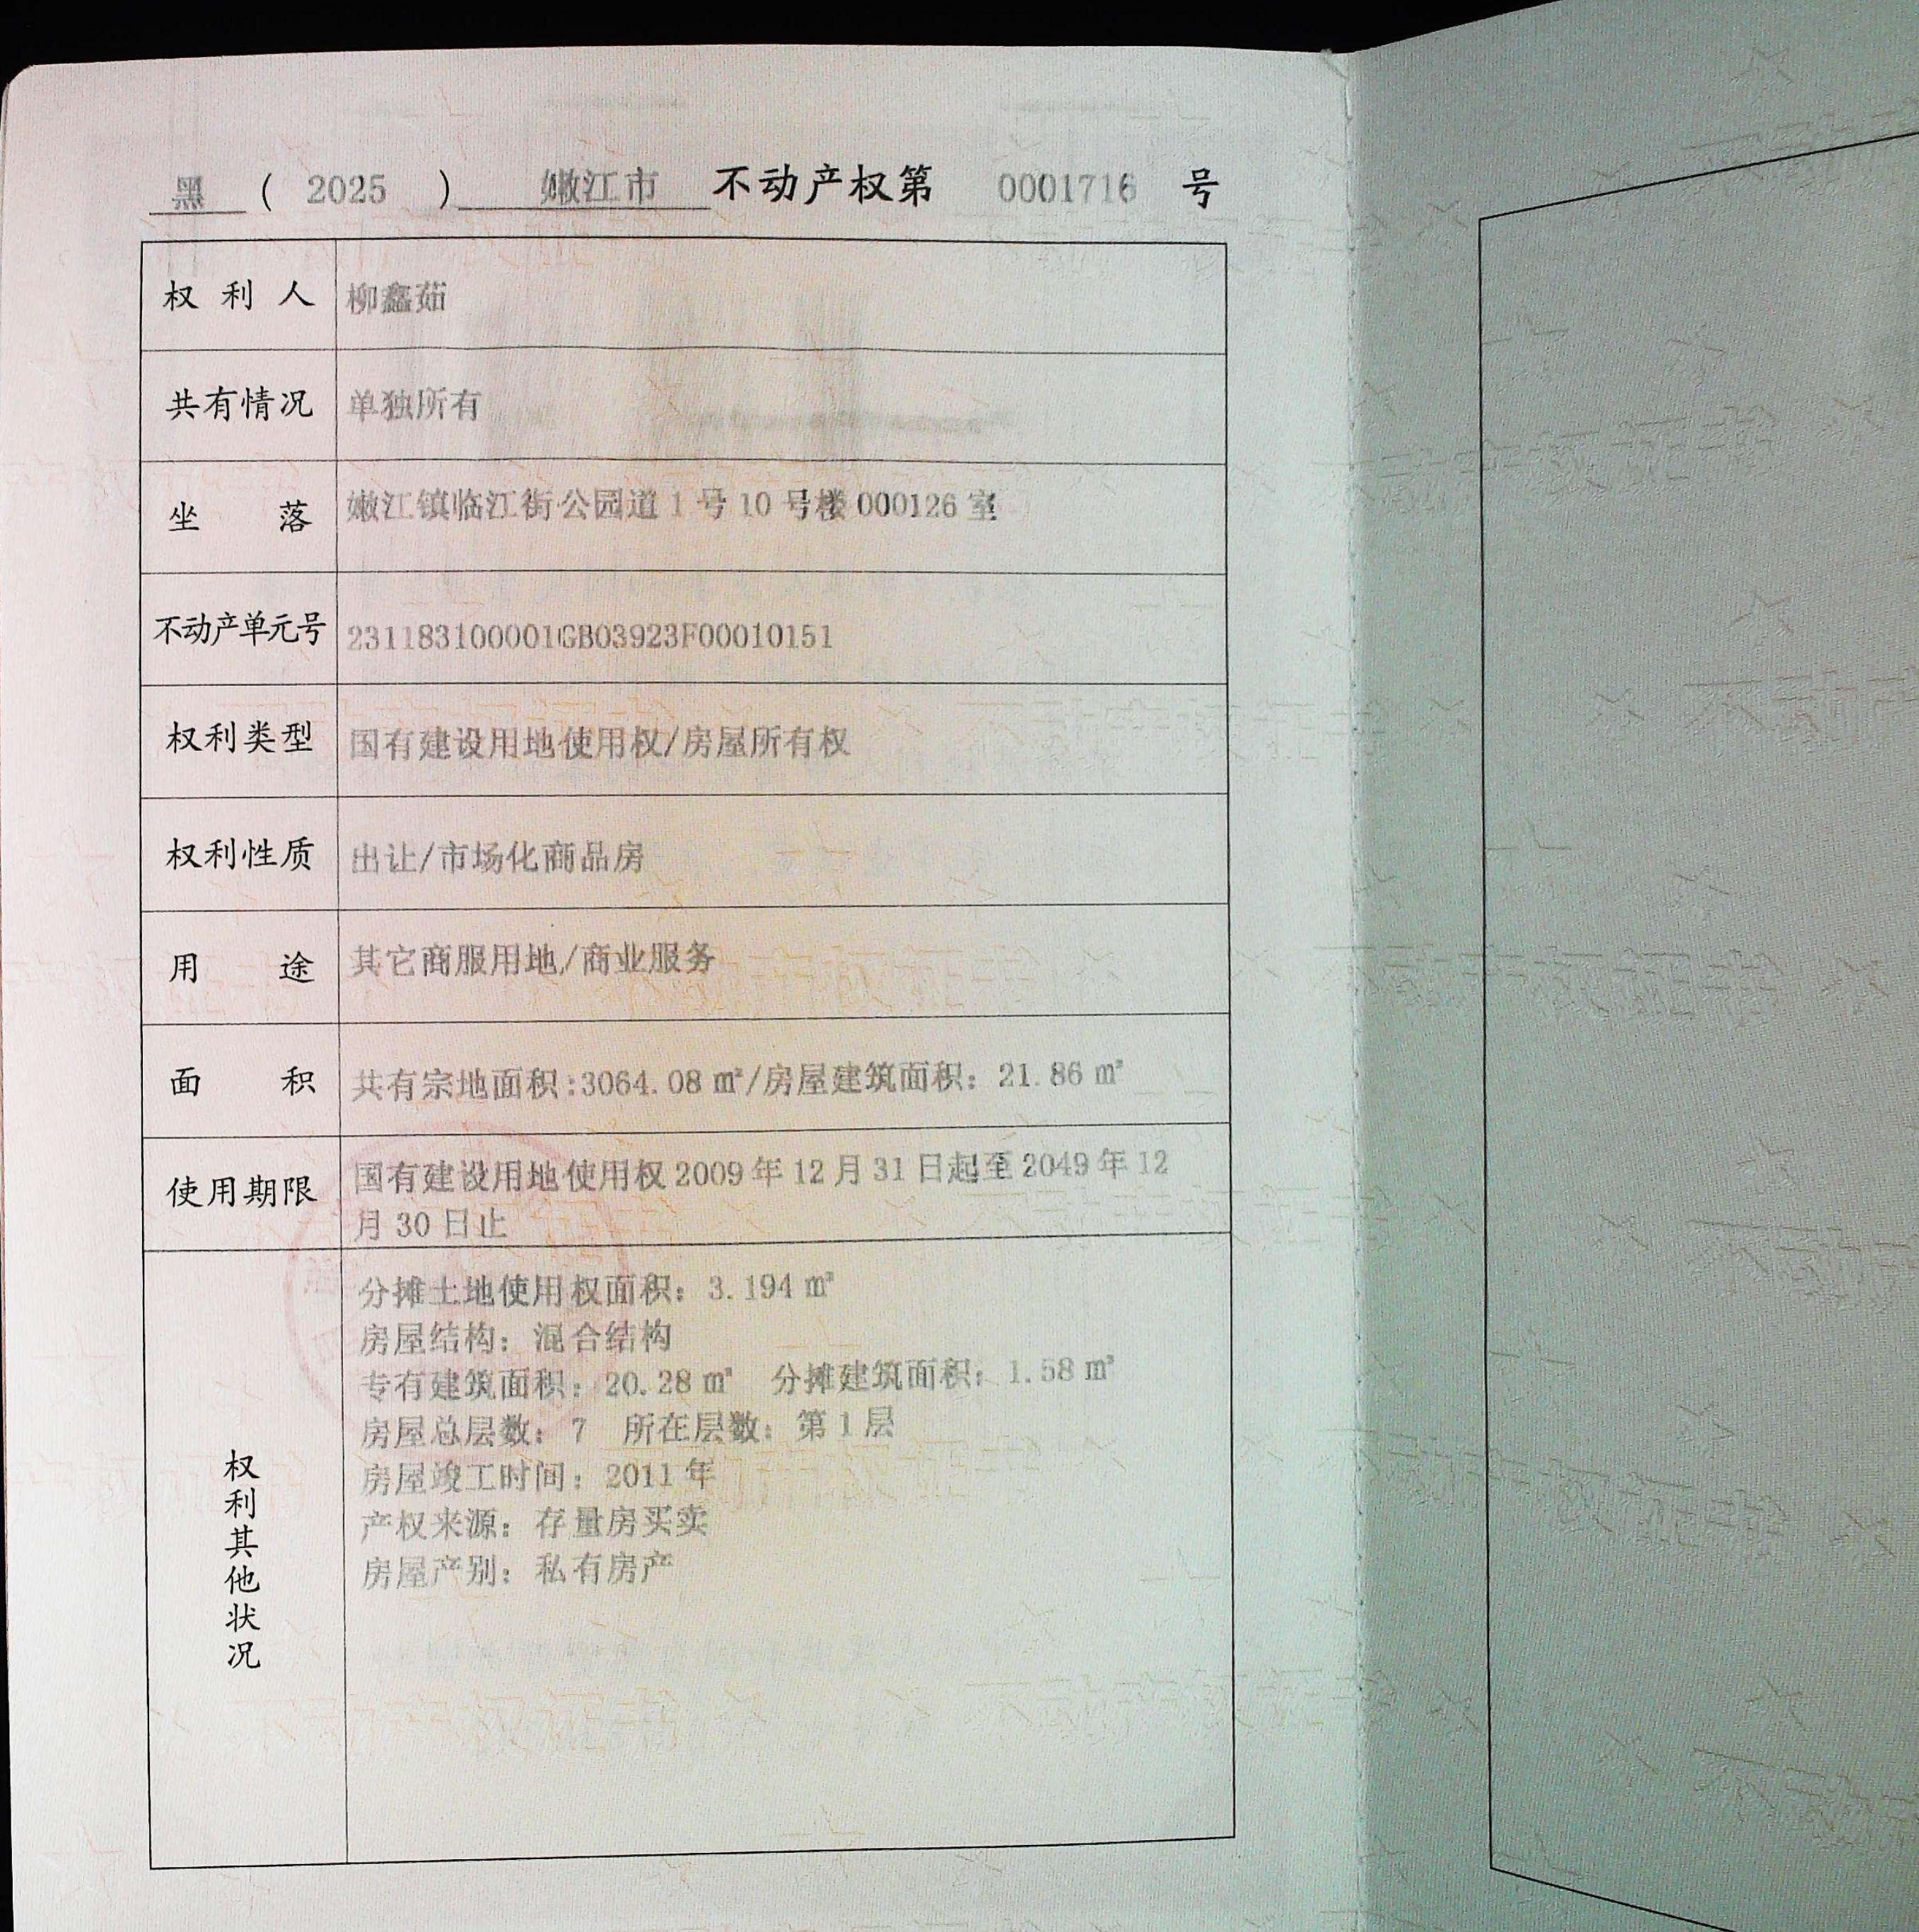 黑 ( 2025 ) 嫩江市 不动产权第 0001716 号
权利人 柳鑫茹
共有情况 单独所有
坐落 嫩江镇临江街公园道1号10号楼000126室
不动产单元号 231183100001GB03923F00010151
权利类型 国有建设用地使用权/房屋所有权
权利性质 出让/市场化商品房
用途 其它商服用地/商业服务
面积 共有宗地面积:3064.08㎡/房屋建筑面积：21.86㎡
使用期限 国有建设用地使用权2009年12月31日起至2049年12
月30日止
权利其他状况
分摊土地使用权面积：3.194㎡
房屋结构：混合结构
专有建筑面积：20.28㎡ 分摊建筑面积：1.58㎡
房屋总层数：7 所在层数：第1层
房屋竣工时间：2011年
产权来源：存量房买卖
房屋产别：私有房产